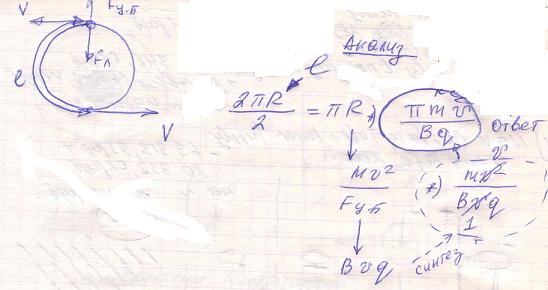 q
Fу.Б
V
Fл
ℓ
V
Анализ
ℓ
2πR/2 = πR *) πmv/Bq ответ
mv²/Fу.Б
*) mv²/Bvq
v
1
Bvq
синтез